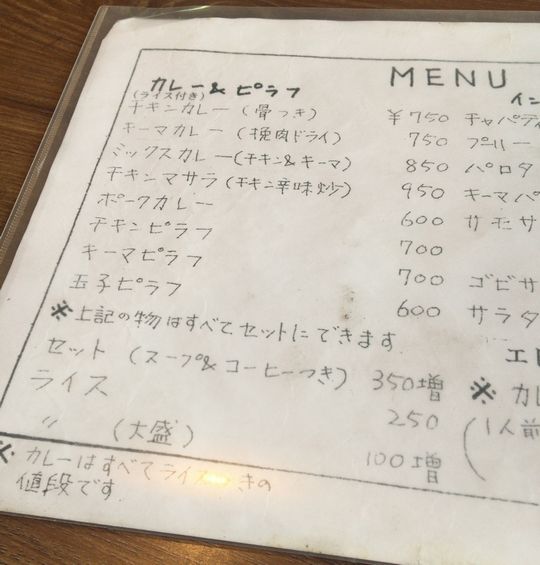 MENU
カレー & ピラフ
(ライス付き)
チキンカレー (骨つき) ¥750
キーマカレー (挽肉ドライ) 750
ミックスカレー(チキン&キーマ) 850
チキンマサラ (チキン辛味炒) 950
ポークカレー 600
チキンピラフ 700
キーマピラフ 700
玉子ピラフ 600
※上記の物はすべてセットにできます
セット (スープ&コーヒーつき) 350増
ライス 250
〃 (大盛) 100増
※カレーはすべてライスつきの
値段です
イン
チャパティ
プーリー
パロタ
キーマパ
サモサ
ゴビサ
サラダ
エ
※カレ
(1人前